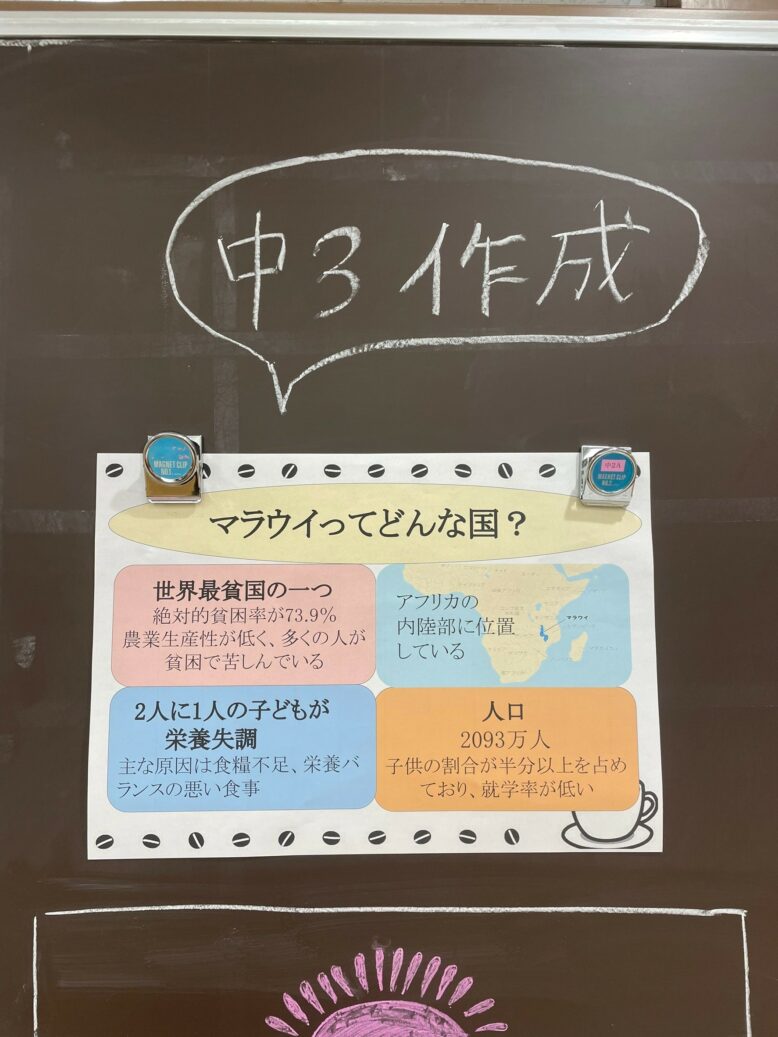 中3作成
MAGNET CLIP
NO.1
中2A
MAGNET CLIP
NO.2
マラウイってどんな国？
世界最貧国の一つ
絶対的貧困率が73.9%
農業生産性が低く、多くの人が
貧困で苦しんでいる
アフリカの
内陸部に位置
している
マラウイ
2人に1人の子どもが
栄養失調
主な原因は食糧不足、栄養バ
ランスの悪い食事
人口
2093万人
子供の割合が半分以上を占め
ており、就学率が低い